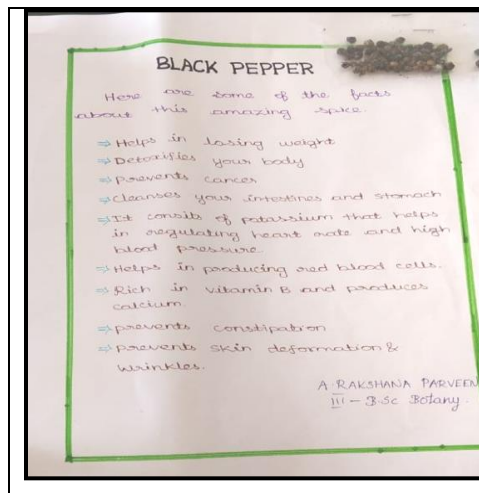 BLACK PEPPER
Here are some of the facts
about this amazing spice.
⇒ Helps in losing weight
⇒ Detoxifies your body
⇒ Prevents cancer
⇒ Cleanses your intestines and stomach
⇒ It consits of potassium that helps
in regulating heart rate and high
blood pressure.
⇒ Helps in producing red blood cells.
⇒ Rich in vitamin B and produces
calcium.
⇒ prevents constipation
⇒ prevents skin deformation &
wrinkles.
A. RAKSHANA PARVEEN
III - B.Sc Botany.